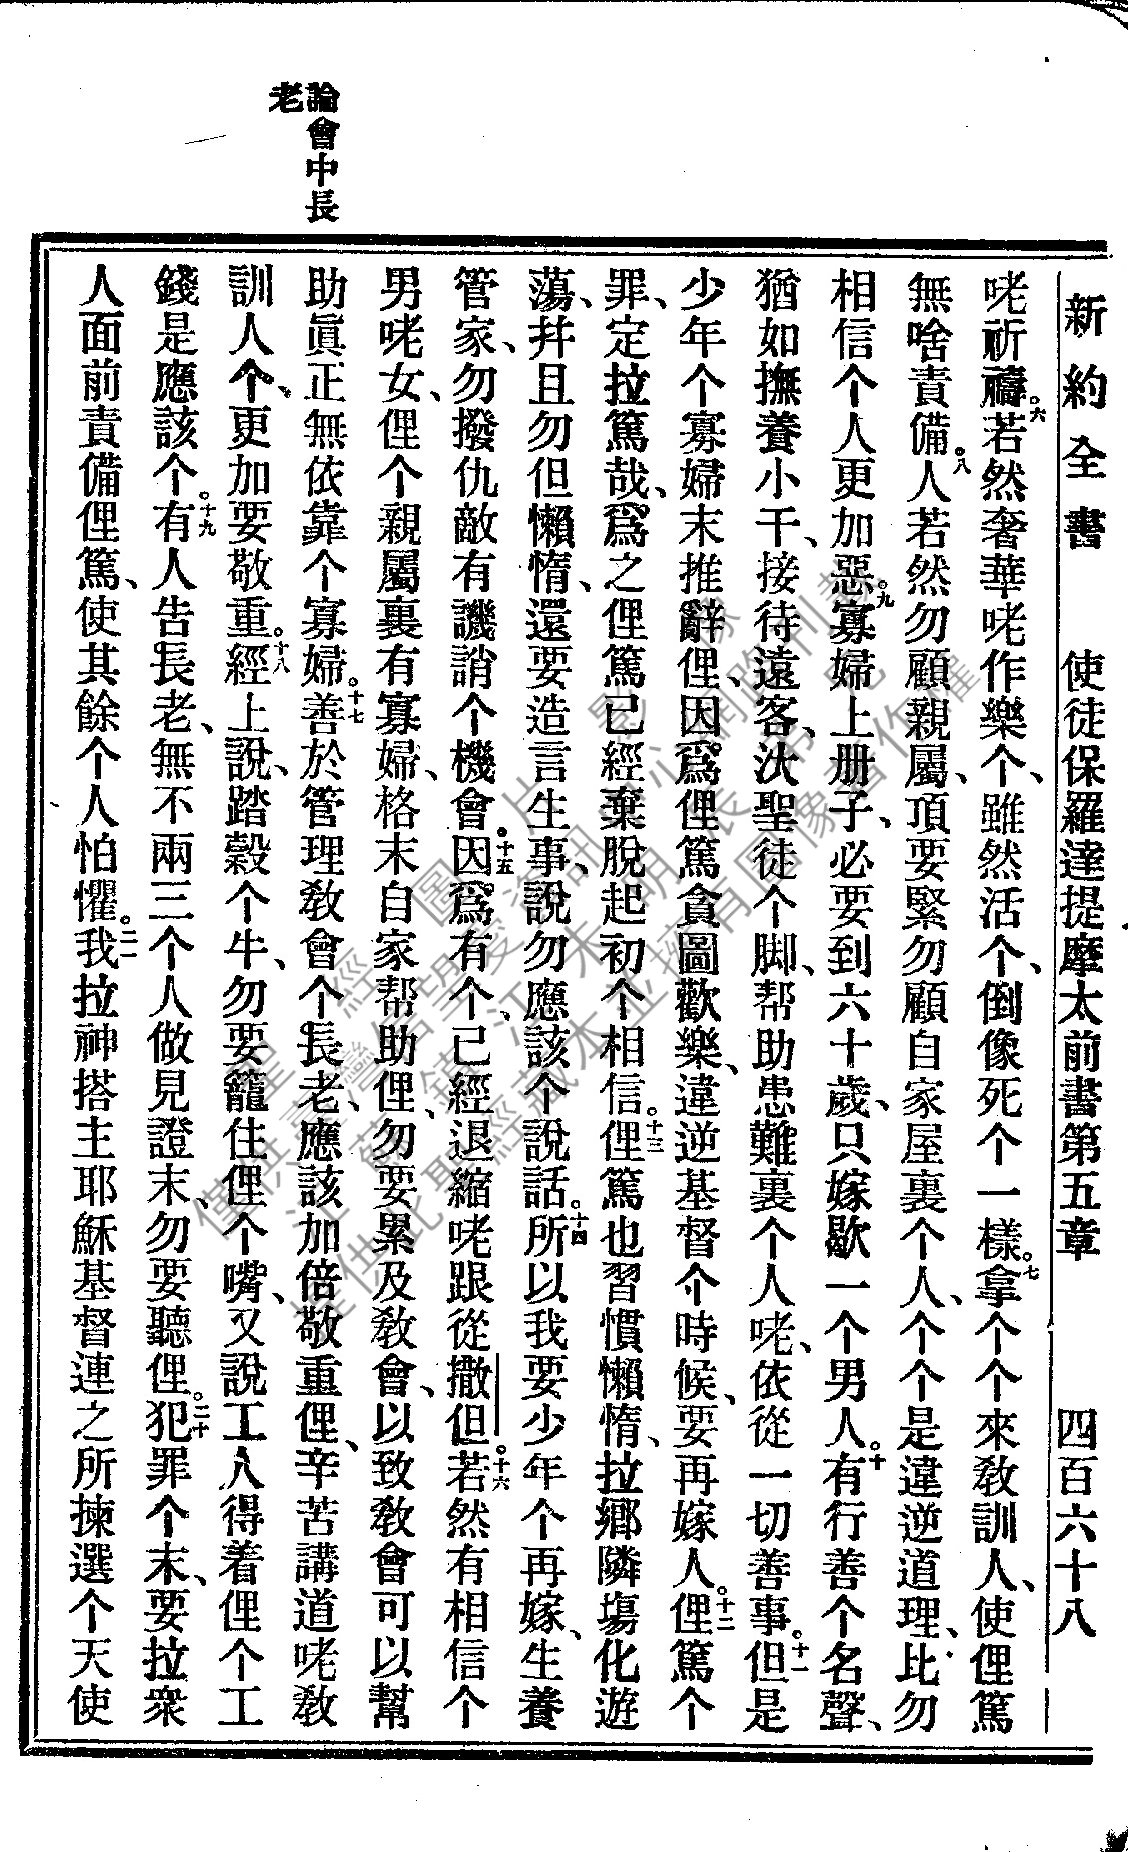 新約全書　使徒保羅達提摩太前書第五章　四百六十八
咾祈禱。六若然奢華咾作樂个、雖然活个、倒像死个一樣。七拿个个來教訓人、使俚篤
無啥責備。八人若然勿顧親屬、項要緊勿顧自家屋裏个人、个个是違逆道理、比勿
相信个人更加惡。九寡婦上册子、必要到六十歲、只嫁歇一个男人。十有行善个名聲、
猶如撫養小干、接待遠客、汏聖徒个脚、帮助患難裏个人咾、依從一切善事。十一但是
少年个寡婦末推辭俚、因爲俚篤貪圖歡樂、違逆基督个時候、要再嫁人。十二俚篤个
罪、定拉篤哉、爲之俚篤已經棄脫起初个相信。十三俚篤也習慣懶惰、拉鄉隣塲化遊
蕩、幷且勿但懶惰、還要造言生事、說勿應該个說話。十四所以我要少年个再嫁、生養
管家、勿撥仇敵有譏誚个機會。十五因爲有个、已經退縮咾跟從撒但。十六若然有相信个
男咾女、俚个親屬裏有寡婦、格末自家帮助俚、勿要累及敎會、以致敎會可以幫
助眞正無依靠个寡婦。十七善於管理敎會个長老、應該加倍敬重俚、辛苦講道咾敎
訓人个、更加要敬重。十八經上說、踏穀个牛、勿要籠住俚个嘴、又說工人得着俚个工
錢是應該个。十九有人告長老、無不兩三个人做見證末、勿要聽俚。二十犯罪个末、要拉衆
人面前責備俚篤、使其餘个人怕懼。二一我拉神搭主耶穌基督連之所揀選个天使
論會中長
老
聖經圖片影像